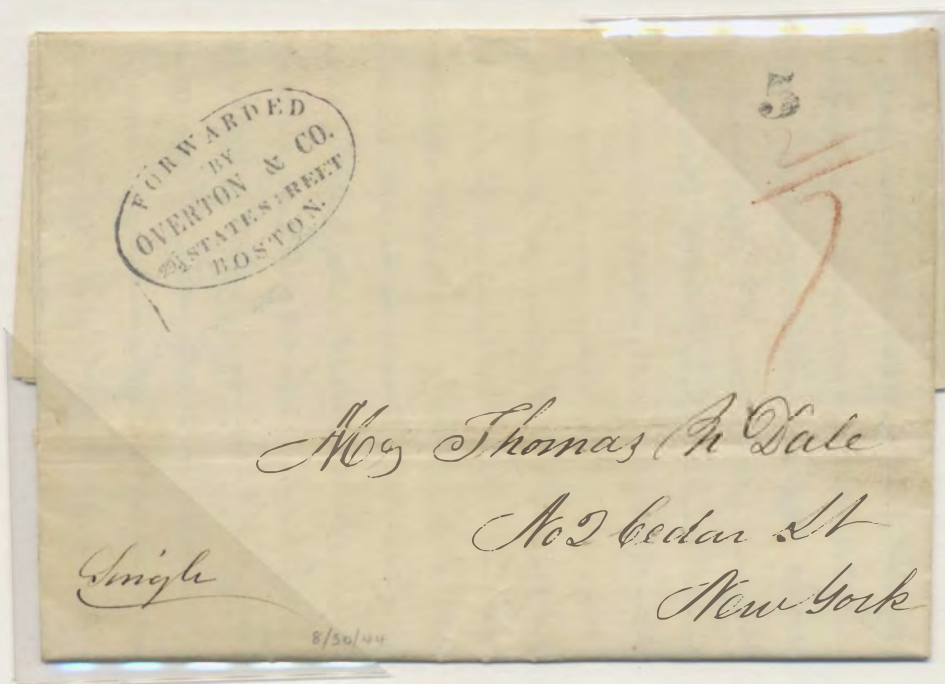 FORWARDED
BY
OVERTON & CO.
29½ STATE STREET
BOSTON.
5
2
7
Mr Thomas N Dale
No 2 Cedar St
New York
Single
8/30/44